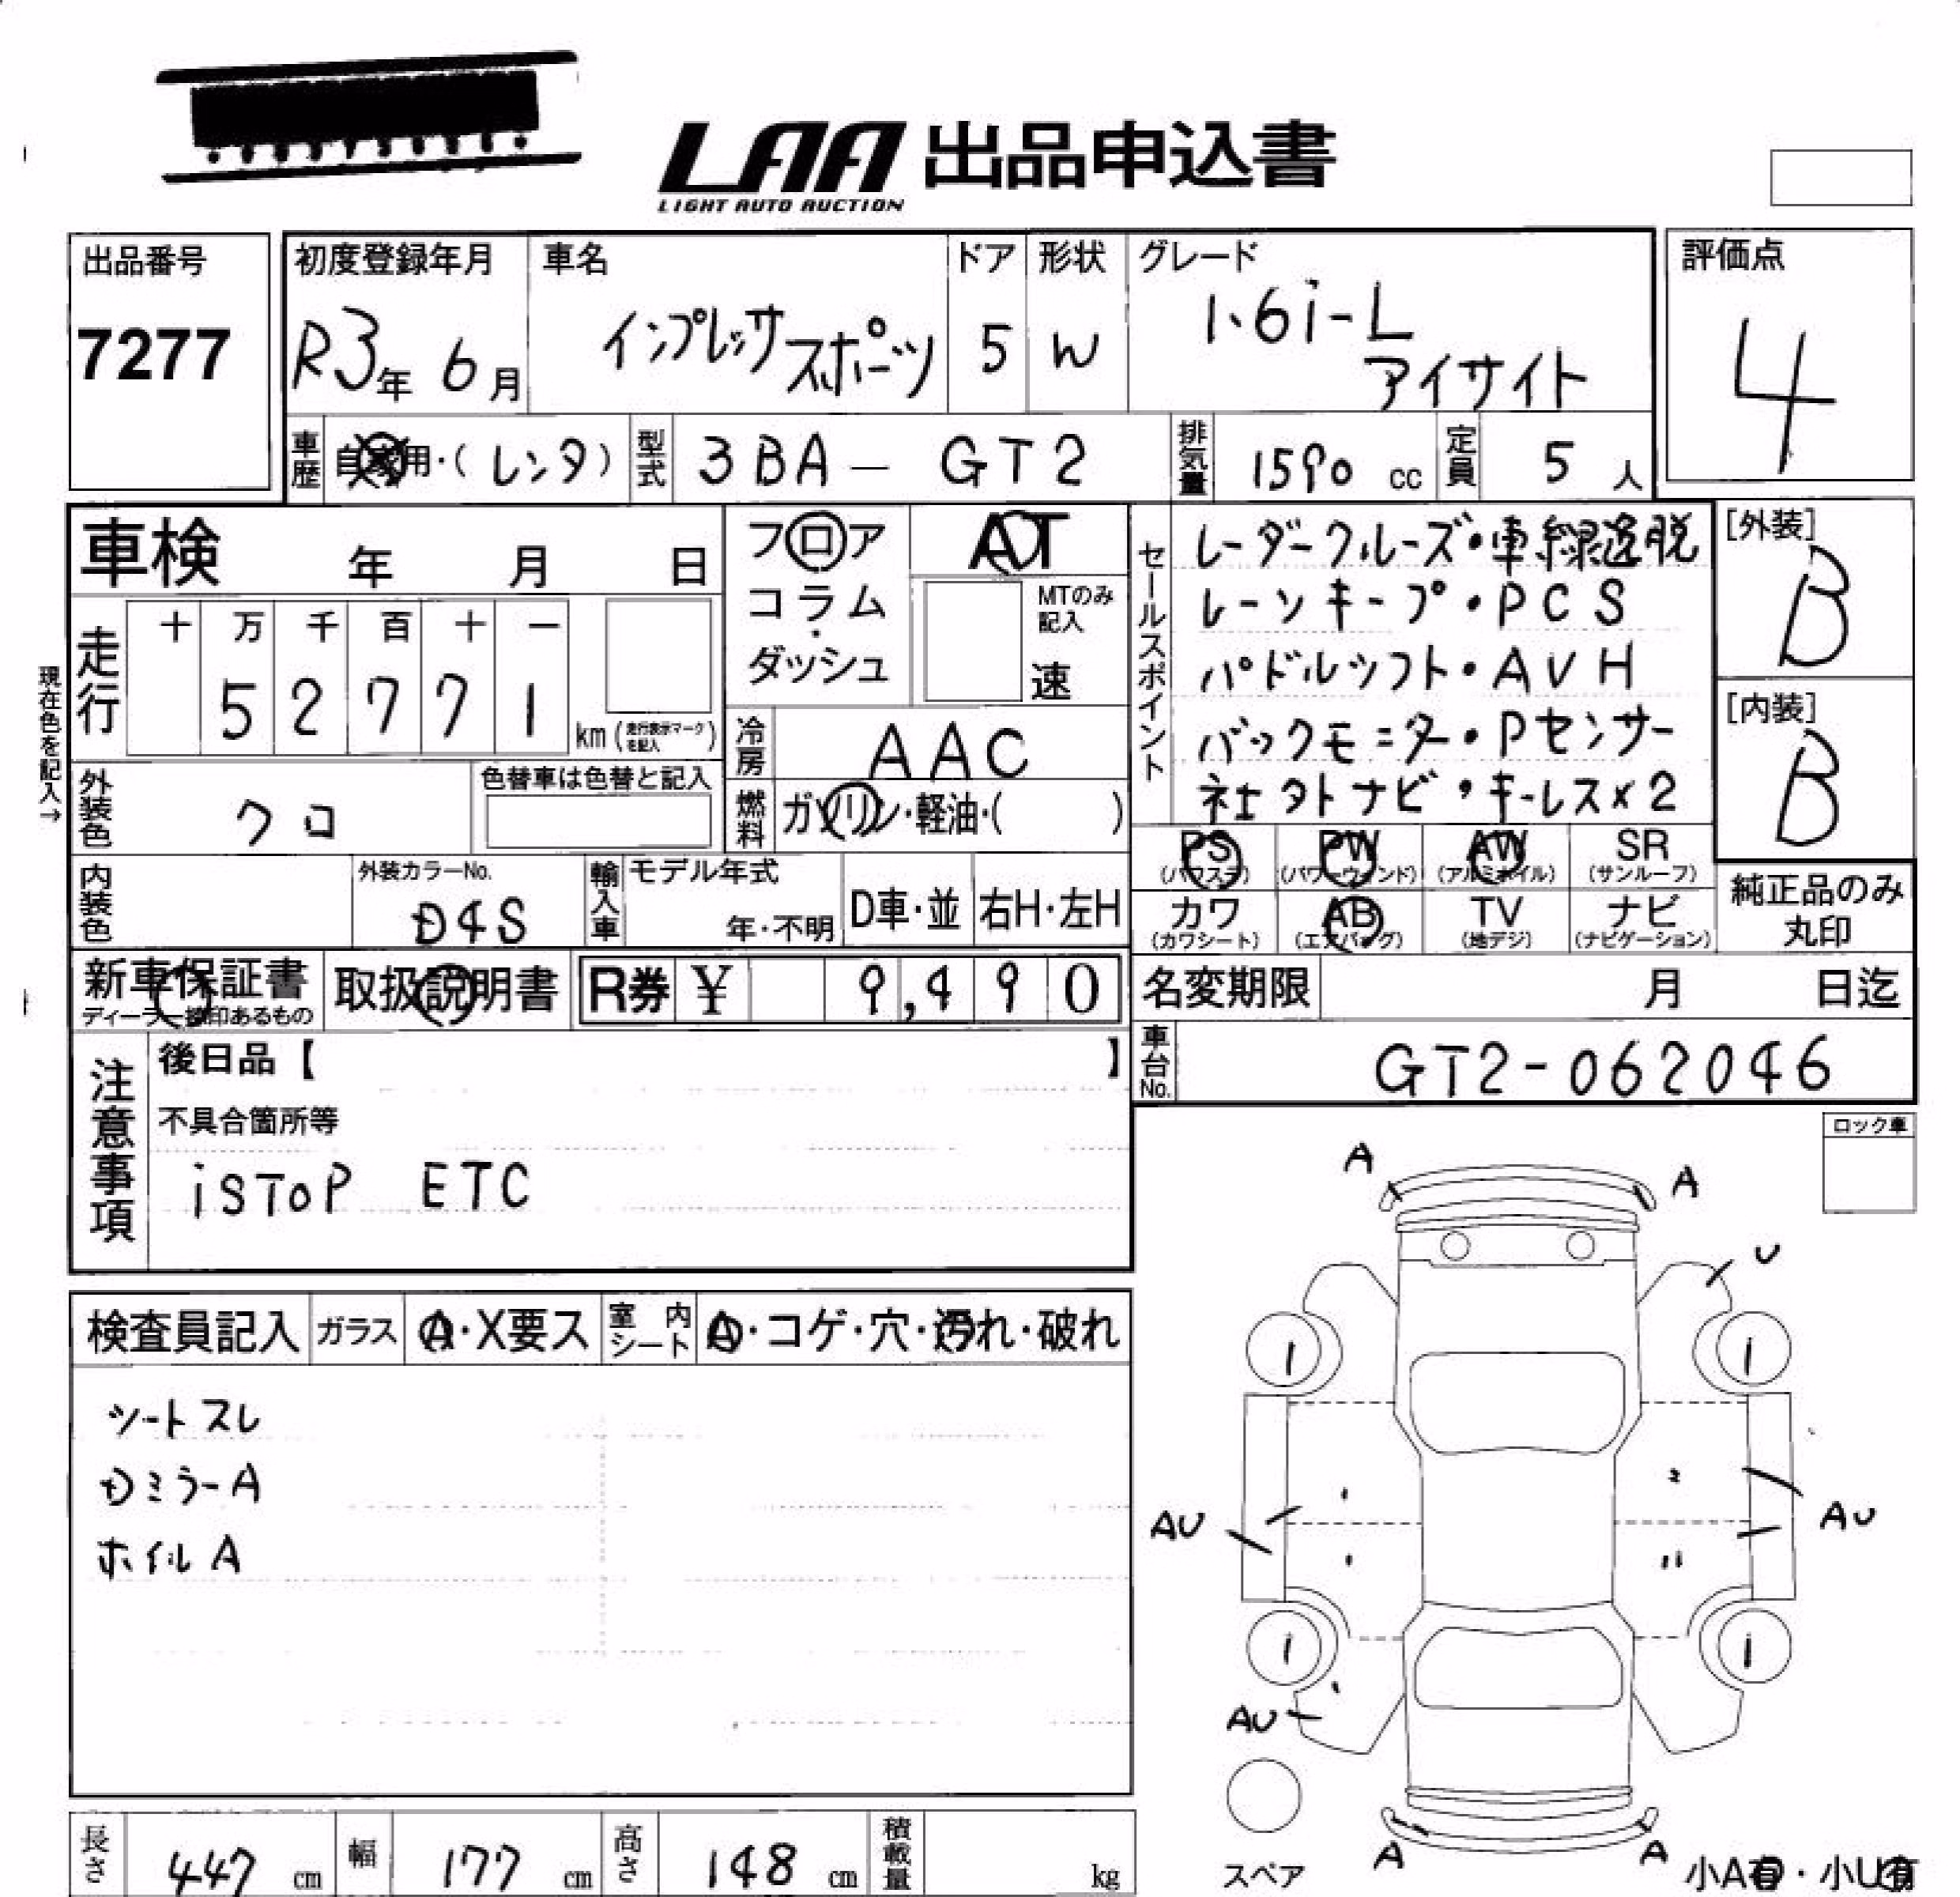 LAA 出品申込書
LIGHT AUTO AUCTION
出品番号
7277
初度登録年月
R3年 6月
車名
インプレッサ スポーツ
ドア
5
形状
W
グレード
1.6i-L
アイサイト
評価点
4
車歴 自家用・(レンタ)
型式 3BA - GT2
排気量 1590 cc
定員 5 人
車検 年 月 日
フロア
コラム
・
ダッシュ
AT
MTのみ
記入
速
セールスポイント
レーダークルーズ・車線逸脱
レーンキープ・PCS
パドルシフト・AVH
バックモニター・Pセンサー
社外ナビ・キーレス×2
[外装]
B
[内装]
B
現在色を記入→
走行
十 万 千 百 十 一
5 2 7 7 1
km (走行表示マークを記入)
冷房 AAC
燃料 ガソリン・軽油・( )
外装色 クロ
色替車は色替と記入
内装色
外装カラーNo.
D4S
輸入車
モデル年式
年・不明
D車・並
右H・左H
PS
(パワステ)
PW
(パワーウィンド)
AW
(アルミホイル)
SR
(サンルーフ)
カワ
(カワシート)
AB
(エアバッグ)
TV
(地デジ)
ナビ
(ナビゲーション)
純正品のみ
丸印
新車保証書
ディーラー捺印あるもの
取扱説明書
R券 ¥ 9,490
名変期限 月 日迄
車台No. GT2-062046
注意事項
後日品【 】
不具合箇所等
iSToP ETC
ロック車
検査員記入
ガラス A・X要ス
室内シート A・コゲ・穴・汚れ・破れ
シートスレ
Dミラー A
ホイル A
A
A
U
AU
AU
AU
A
A
スペア
小A有・小U有
長さ 447 cm
幅 177 cm
高さ 148 cm
積載量 kg